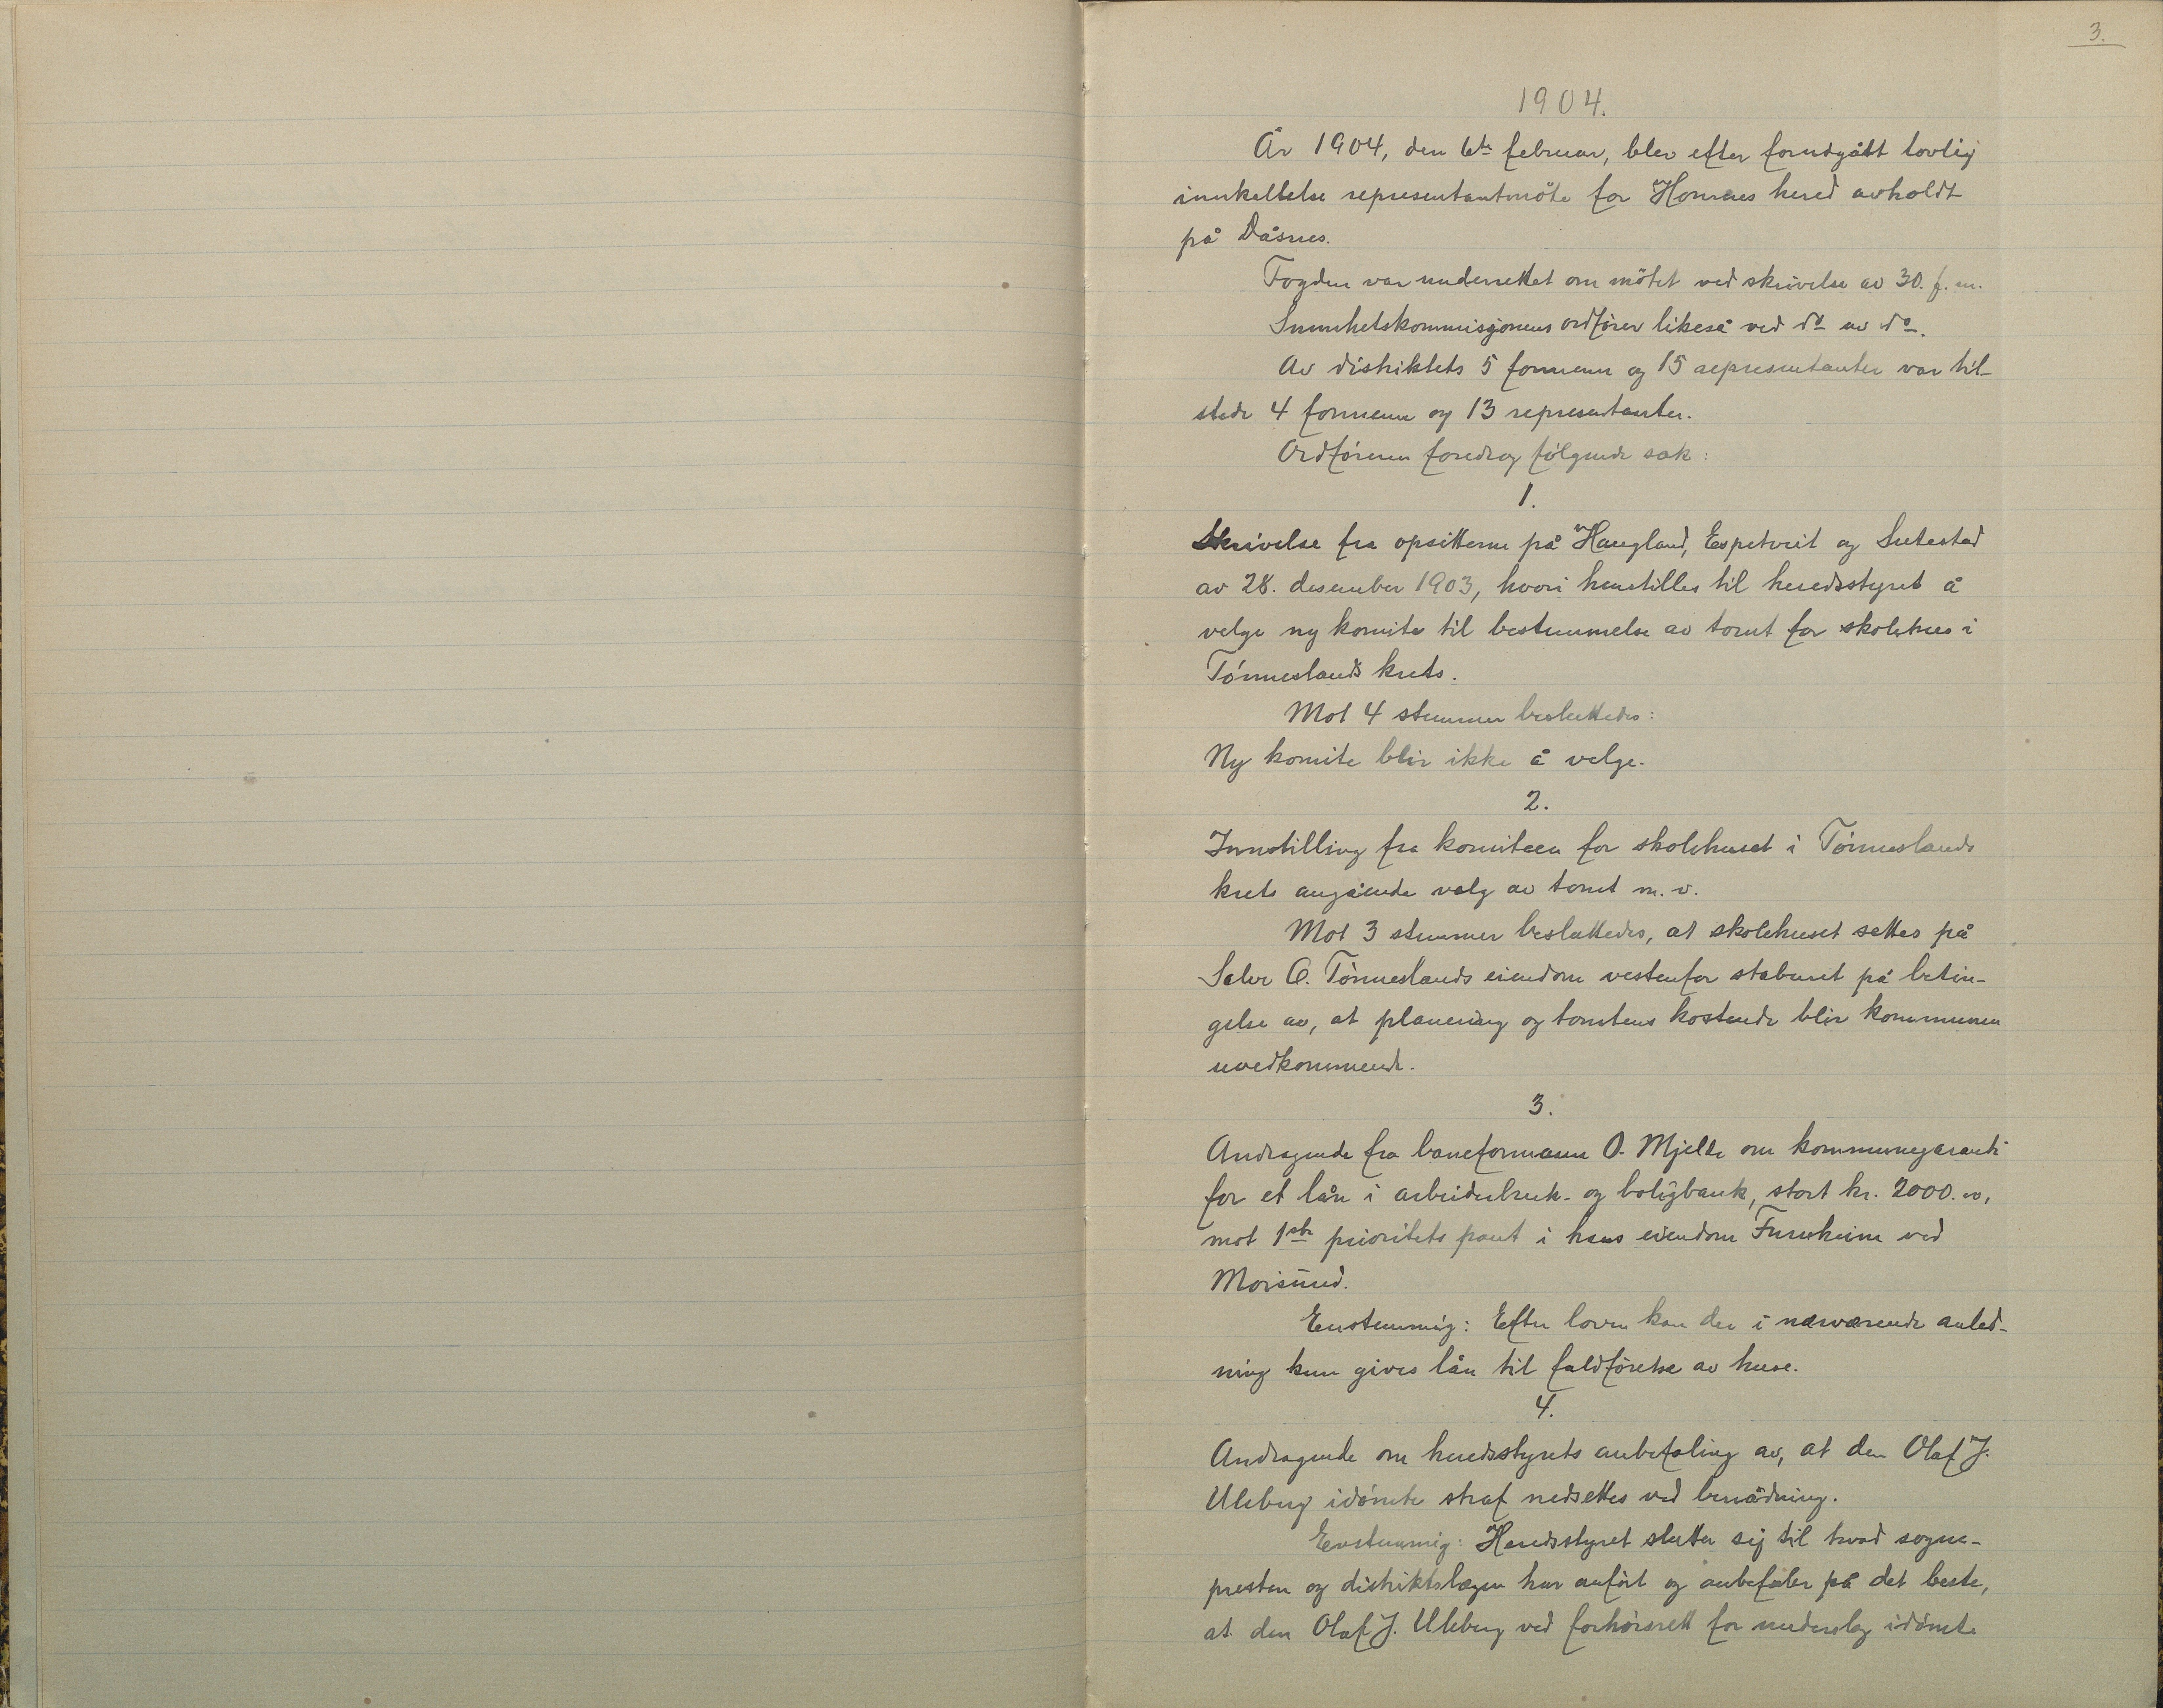 3.
1904.
År 1904, den 6te februar, blev efter forutgått lovlig
innkallelse representantmöte for Hornnes hered avholdt
på Dåsnes.
Fogden var underrettet om mötet ved skrivelse av 30. f. m.
Sunnhetskommisjonens ordförer likeså ved do av do.
Av distriktets 5 formenn og 15 representanter var til-
stede 4 formenn og 13 representanter.
Ordföreren foredrog fölgende sak:
1.
Skrivelse fra opsitterne på Haugland, Espetveit og Sutestad
av 28. desember 1903, hvori henstilles til heredsstyret å
velge ny komite til bestemmelse av tomt for skolehus i
Tönneslands krets.
Mot 4 stemmer besluttedes:
Ny komite blir ikke å velge.
2.
Innstilling fra komiteen for skolehuset i Tönneslands
krets angående valg av tomt m. v.
Mot 3 stemmer besluttedes, at skolehuset settes på
Salve O. Tönneslands eiendom vestenfor staburet på betin-
gelse av, at planering og tomtens kostende blir kommunen
uvedkommende.
3.
Andragende fra baneformann O. Mjelde om kommunegaranti
for et lån i arbeiderbruk- og boligbank, stort kr. 2000.00,
mot 1ste prioritets pant i hans eiendom Furuheim ved
Moisund.
Enstemmig: Efter loven kan der i nærværende anled-
ning kun gives lån til fuldförelse av huse.
4.
Andragende om heredsstyrets anbefaling av, at den Olaf J.
Uleberg idömte straf nedsettes ved benådning.
Enstemmig: Heredsstyret slutter sig til hvad sogne-
presten og distriktslægen har anfört og anbefaler på det beste,
at den Olaf J. Uleberg ved forhörsrett for underslag idömte